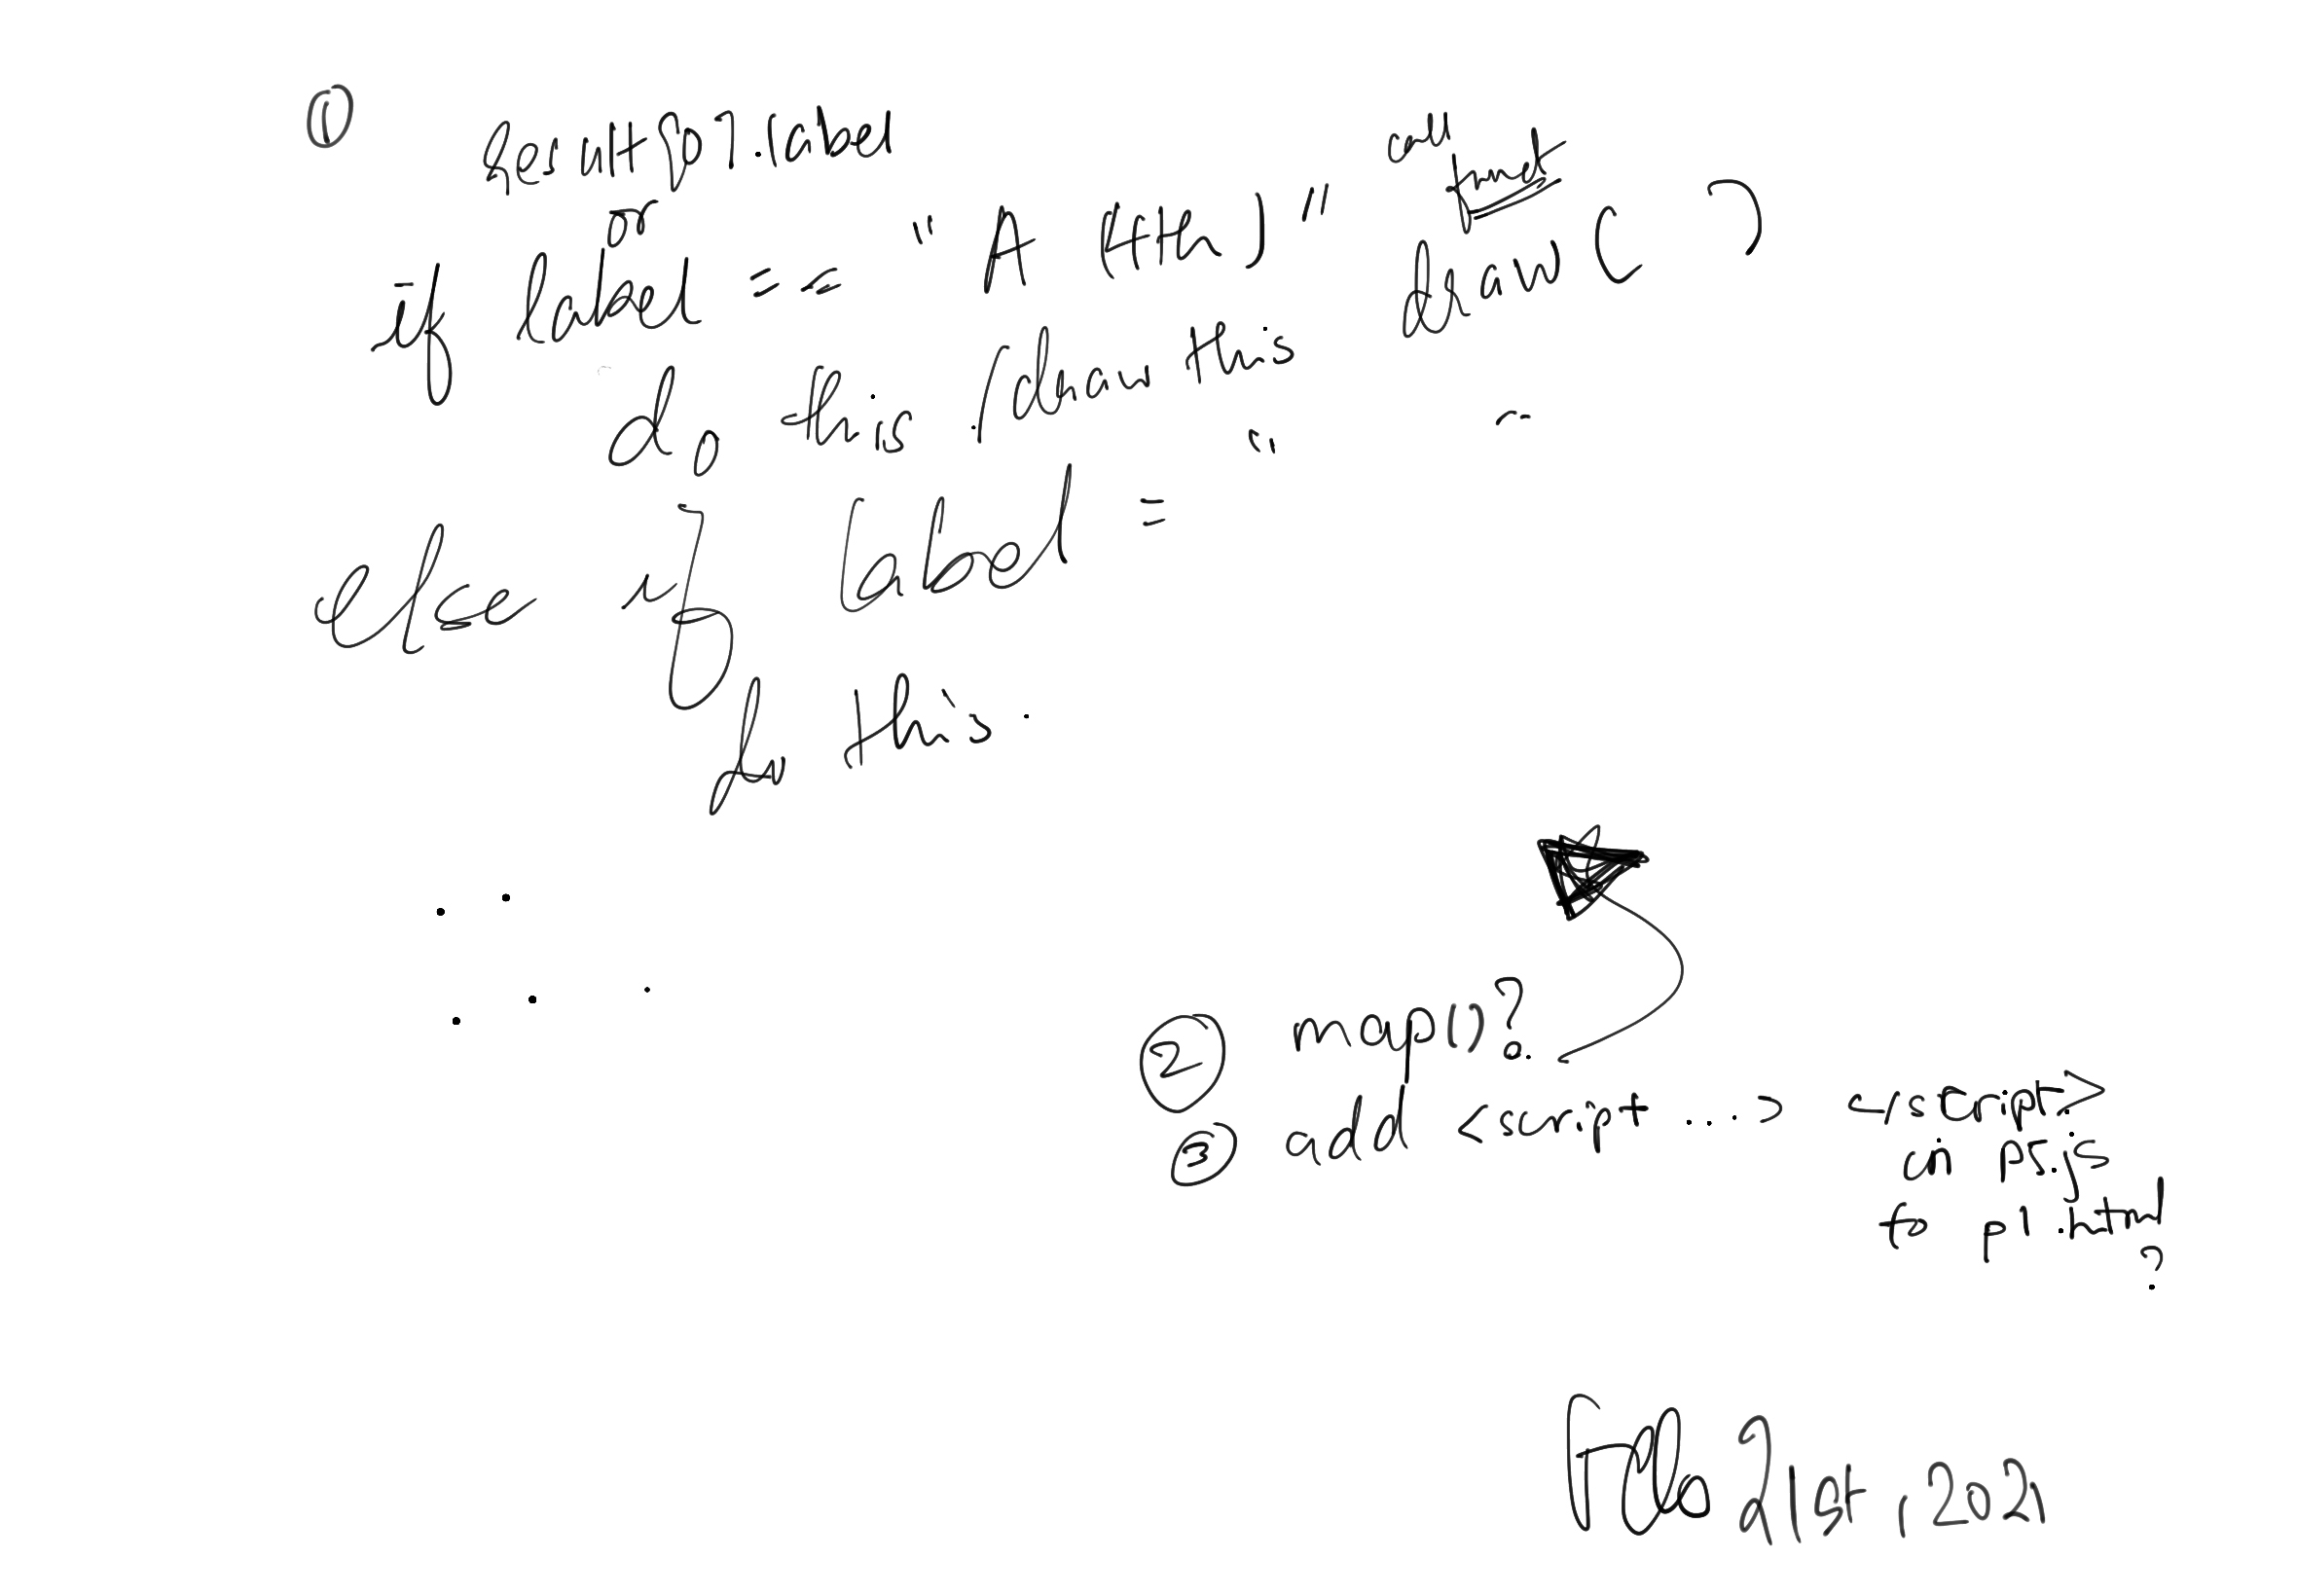 ①
Result[0].label
or
if label == "A (4th)"
call
draw( )
do this / draw this
else if label = "
do this.
② map()?
③ add <script ...> </script>
in p5.js
to p1.html
?
Feb 21st, 2021